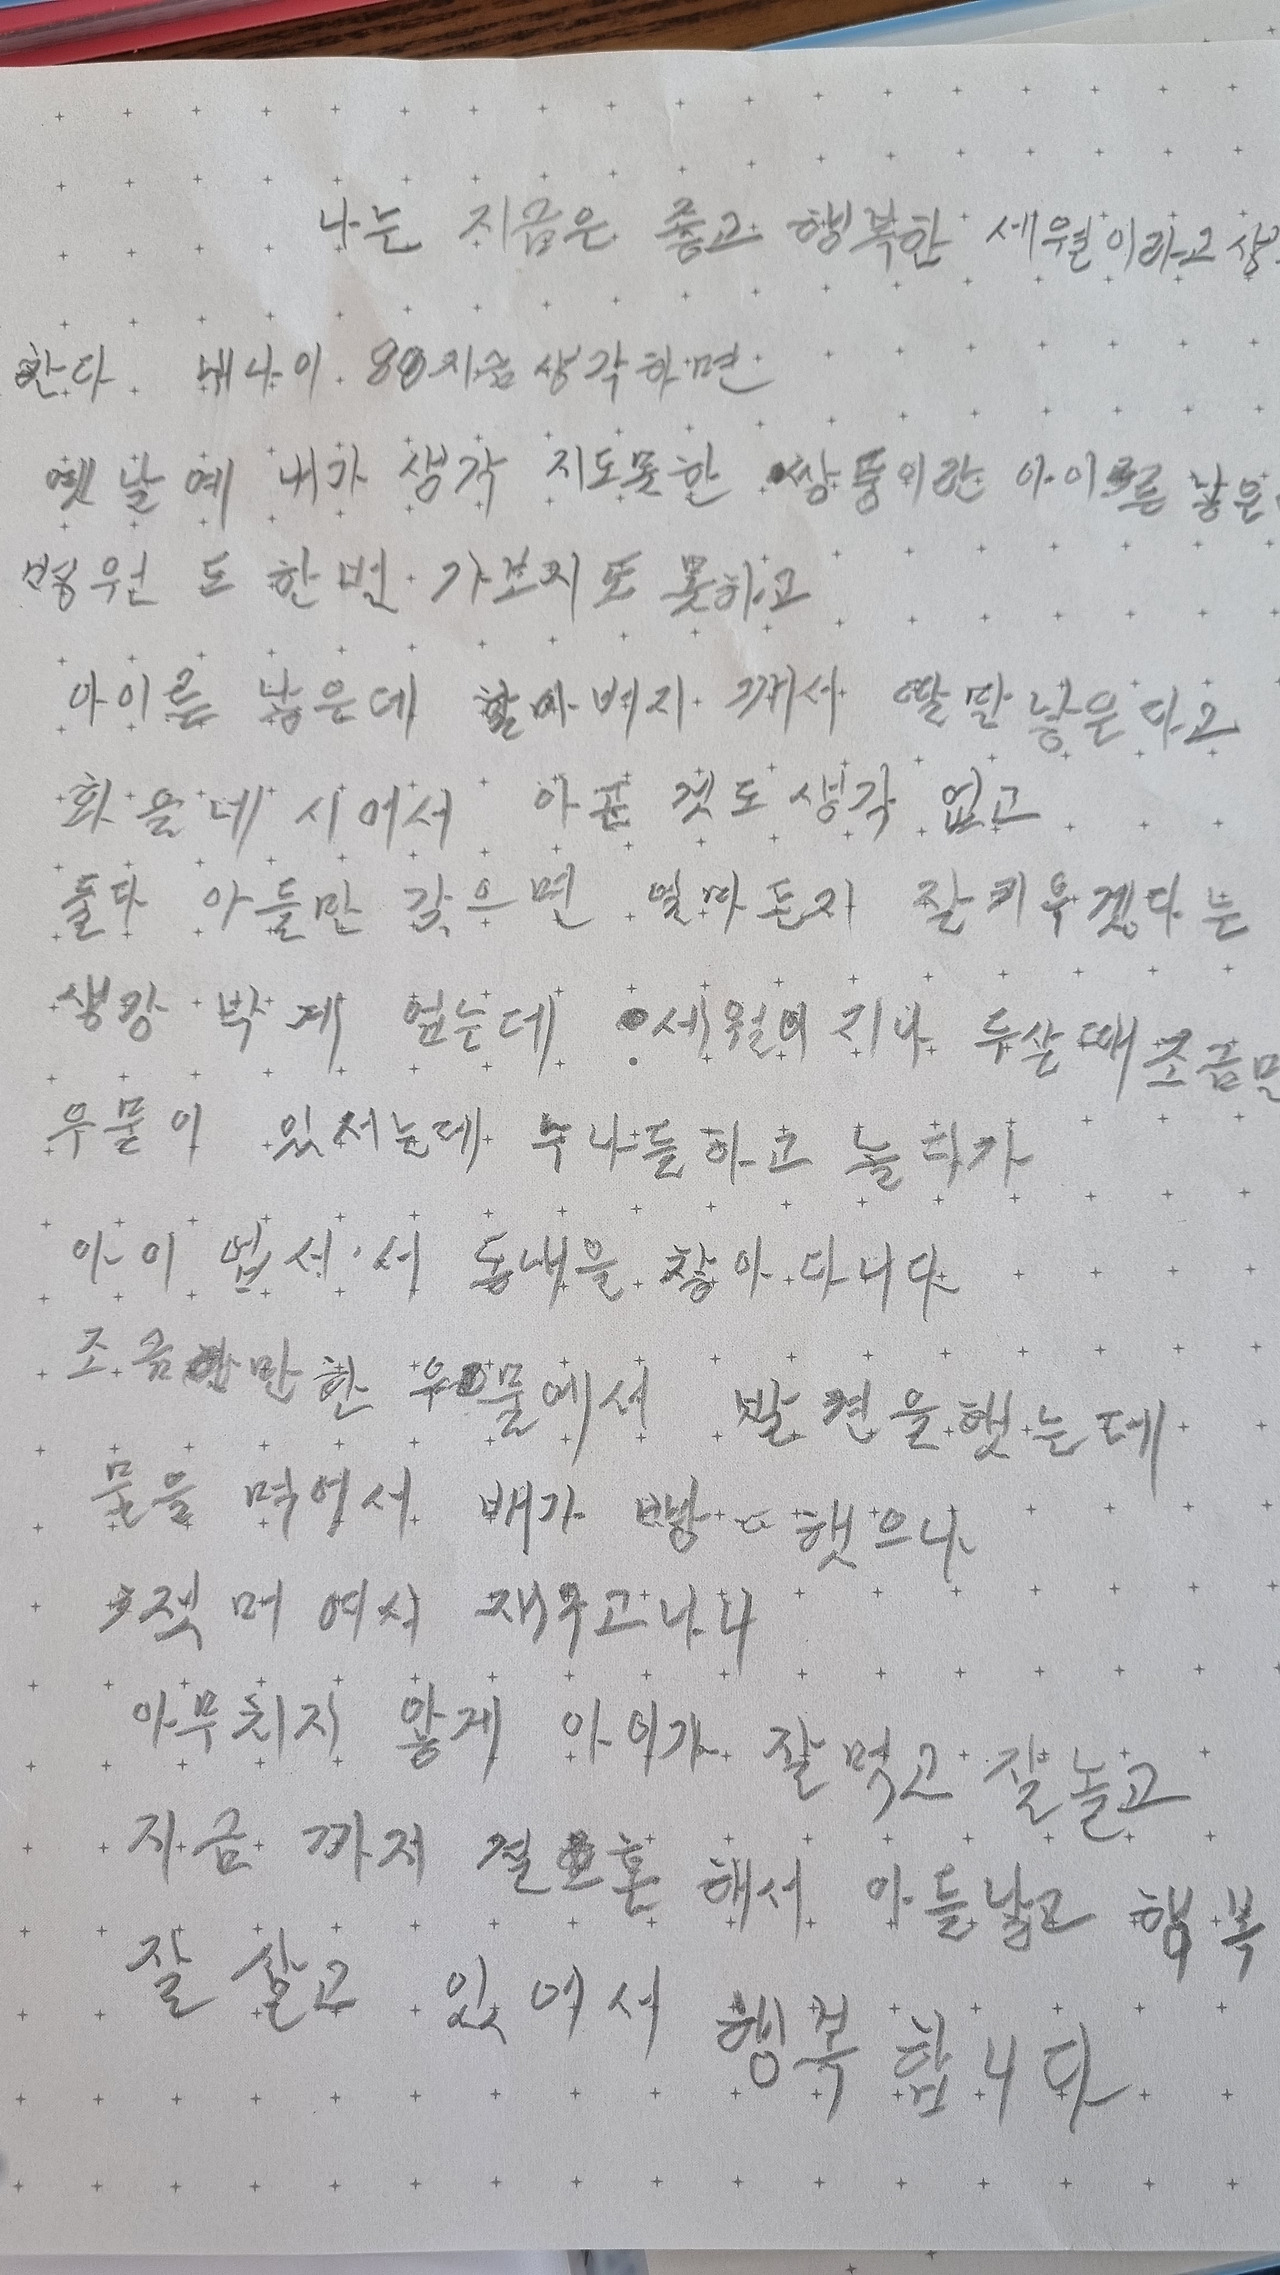 나는 지금은 좋고 행복한 세월이라고 생
한다. 내나이 80지금 생각하면
옛날예 내가 생각 지도못한 쌍뚱이란 아이를 낳은
병원 도 한번 가보지도 못하고
아이를 낳은데 할아버지 께서 딸만낳은다고
화을네 시어서 아픈 것도 생각 없고
둘다 아들만 갖으면 얼마든지 잘키우겠다는
생각 박게 없는데 세월이 지나 두살때 조금만
우물이 있서는데 누나들하고 놀다가
아이 업서서 동내을 찾아다니다
조금만한 우물에서 발견을했는데
물을 먹어서 배가 빵빵했으나
젖머여서 재우고나니
아무치지 않게 아이가 잘먹고 잘놀고
지금 까지 결혼 해서 아들낳고 행복
잘 살고 있어서 행복 합니다